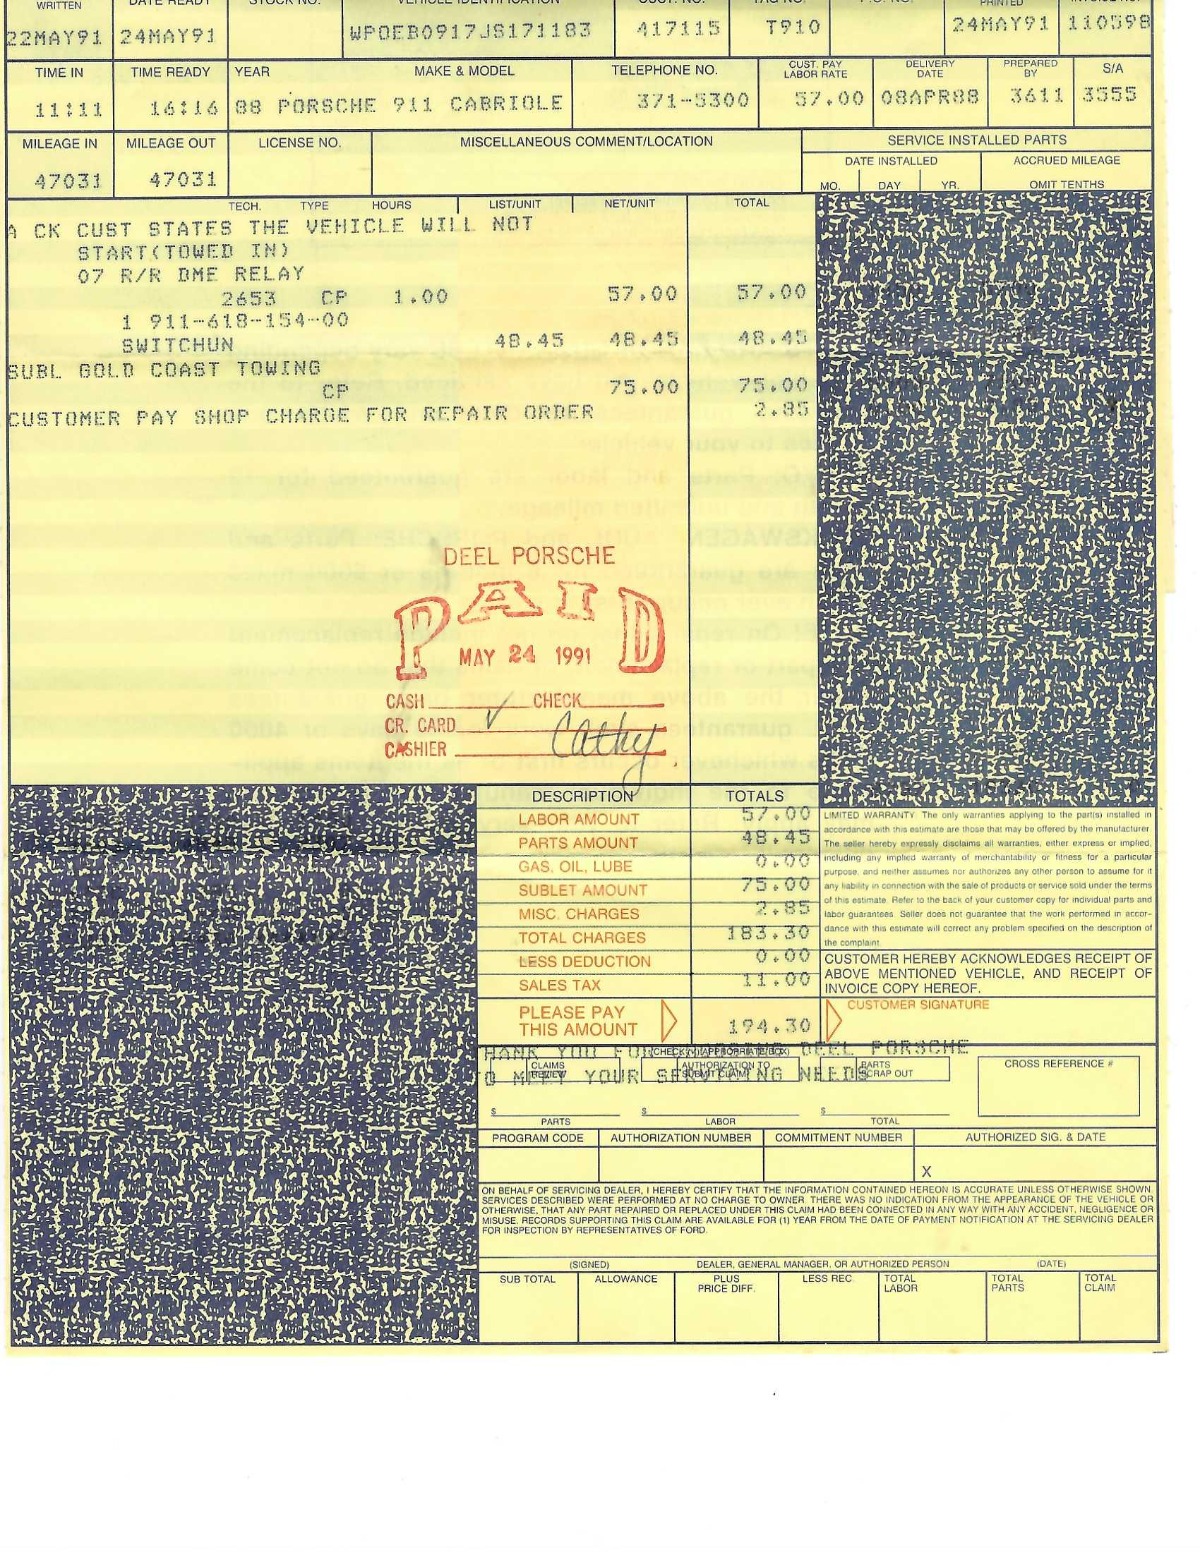 WRITTEN DATE READY STOCK NO. VEHICLE IDENTIFICATION CUST. NO. TAG NO. PRINTED
22MAY91 24MAY91 WP0EB0917JS171183 417115 T910 24MAY91 110598
TIME IN TIME READY YEAR MAKE & MODEL TELEPHONE NO. CUST. PAY LABOR RATE DELIVERY DATE PREPARED BY S/A
11:11 16:16 88 PORSCHE 911 CABRIOLE 371-5300 57.00 08APR88 3611 3555
MILEAGE IN MILEAGE OUT LICENSE NO. MISCELLANEOUS COMMENT/LOCATION SERVICE INSTALLED PARTS
DATE INSTALLED ACCRUED MILEAGE
47031 47031 MO. DAY YR. OMIT TENTHS
TECH. TYPE HOURS LIST/UNIT NET/UNIT TOTAL
A CK CUST STATES THE VEHICLE WILL NOT
START(TOWED IN)
07 R/R DME RELAY
2653 CP 1.00 57.00 57.00
1 911-618-154-00
SWITCHUN 48.45 48.45 48.45
SUBL GOLD COAST TOWING
CP 75.00 75.00
CUSTOMER PAY SHOP CHARGE FOR REPAIR ORDER 2.85
DEEL PORSCHE
PAID
MAY 24 1991
CASH CHECK
CR. CARD ✓
CASHIER Cathy
DESCRIPTION TOTALS
LABOR AMOUNT 57.00
PARTS AMOUNT 48.45
GAS, OIL, LUBE 0.00
SUBLET AMOUNT 75.00
MISC. CHARGES 2.85
TOTAL CHARGES 183.30
LESS DEDUCTION 0.00
SALES TAX 11.00
PLEASE PAY
THIS AMOUNT 194.30
LIMITED WARRANTY. The only warranties applying to the part(s) installed in
accordance with this estimate are those that may be offered by the manufacturer.
The seller hereby expressly disclaims all warranties, either express or implied,
including any implied warranty of merchantability or fitness for a particular
purpose, and neither assumes nor authorizes any other person to assume for it
any liability in connection with the sale of products or service sold under the terms
of this estimate. Refer to the back of your customer copy for individual parts and
labor guarantees. Seller does not guarantee that the work performed in accor-
dance with this estimate will correct any problem specified on the description of
the complaint.
CUSTOMER HEREBY ACKNOWLEDGES RECEIPT OF
ABOVE MENTIONED VEHICLE, AND RECEIPT OF
INVOICE COPY HEREOF.
CUSTOMER SIGNATURE
THANK YOU FOR DEEL PORSCHE
(CHECK (X) APPROPRIATE BOX)
TO MEET YOUR SERVICING NEEDS
CLAIMS REVIEW AUTHORIZATION TO SUBMIT CLAIM PARTS SCRAP OUT CROSS REFERENCE #
$ $ $
PARTS LABOR TOTAL
PROGRAM CODE AUTHORIZATION NUMBER COMMITMENT NUMBER AUTHORIZED SIG. & DATE
X
ON BEHALF OF SERVICING DEALER, I HEREBY CERTIFY THAT THE INFORMATION CONTAINED HEREON IS ACCURATE UNLESS OTHERWISE SHOWN.
SERVICES DESCRIBED WERE PERFORMED AT NO CHARGE TO OWNER. THERE WAS NO INDICATION FROM THE APPEARANCE OF THE VEHICLE OR
OTHERWISE, THAT ANY PART REPAIRED OR REPLACED UNDER THIS CLAIM HAD BEEN CONNECTED IN ANY WAY WITH ANY ACCIDENT, NEGLIGENCE OR
MISUSE. RECORDS SUPPORTING THIS CLAIM ARE AVAILABLE FOR (1) YEAR FROM THE DATE OF PAYMENT NOTIFICATION AT THE SERVICING DEALER
FOR INSPECTION BY REPRESENTATIVES OF FORD.
(SIGNED) DEALER, GENERAL MANAGER, OR AUTHORIZED PERSON (DATE)
SUB TOTAL ALLOWANCE PLUS PRICE DIFF. LESS REC. TOTAL LABOR TOTAL PARTS TOTAL CLAIM